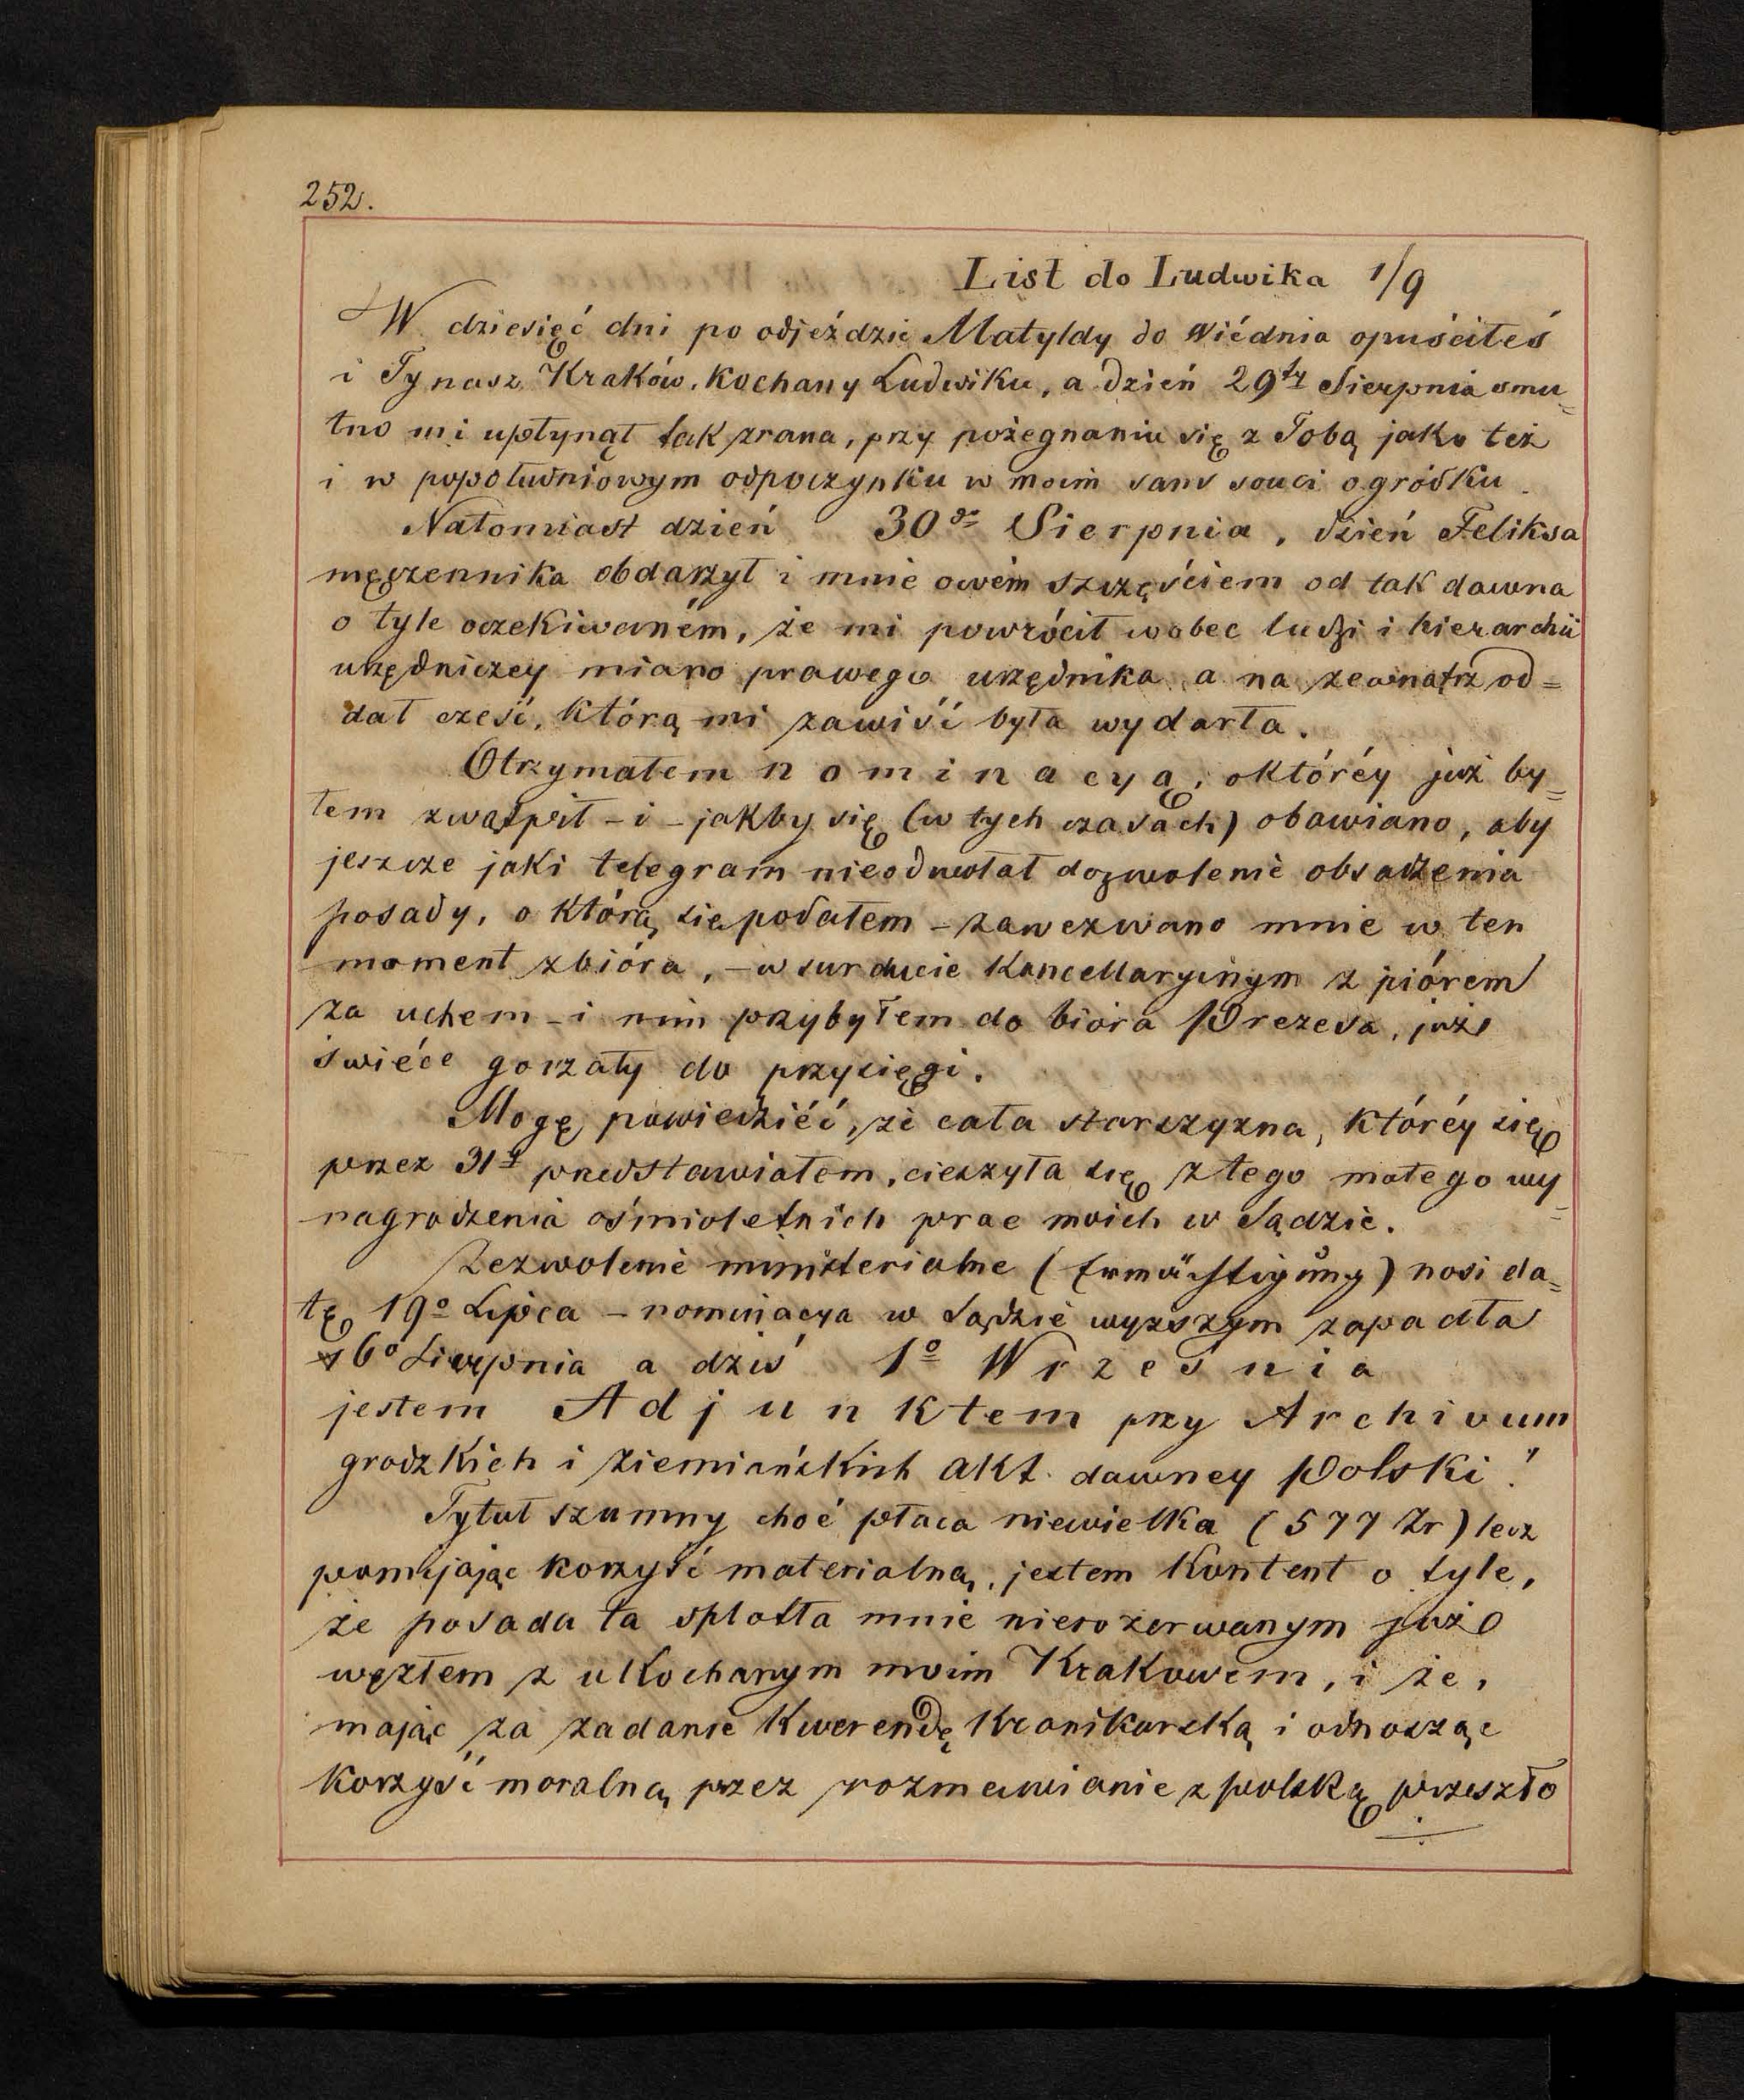 252.
List do Ludwika 1/9
W dziesięć dni po odjeździe Matyldy do Wiédnia opuściłeś
i Ty nasz Kraków, Kochany Ludwiku, a dzień 29ty Sierpnia smu=
tno mi upłynął tak zrana, przy pożegnaniu się z Tobą jako też
i w popołudniowym odpoczynku w moim sans souci ogródku.
Natomiast dzień 30go Sierpnia, dzień Feliksa
męczennika obdarzył i mnie owém szczęściem od tak dawna
o tyle oczekiwaném, że mi powrócił wobec ludzi i hierarchii
urzędniczey miano prawego urzędnika a na zewnątrz od=
dał cześć, którą mi zawiść była wydarła.
Otrzymałem nominacyą, o któréy już by=
łem zwątpił – i – jakby się (w tych czasach) obawiano, aby
jeszcze jaki telegram nieodwołał dozwolenie obsadzenia
posady, o którą się podałem – zawezwano mnie w ten
moment z bióra, – w surducie Kancellaryjnym z piórem
za uchem – i nim przybyłem do bióra Prezesa, już
świéce gorzały do przysięgi.
Mogę powiedziéć, że cała starszyzna, któréy się
przez 31go przedstawiałem, cieszyła się z tego małego wy=
nagrodzenia ośmioletnich prac moich w Sądzie.
Zezwolenie ministerialne (Ermächtigung) nosi da=
tę 19o Lipca – nominacya w Sądzie wyższym zapadła
6o Sierpnia a dziś 1o Września
jestem Adjunktem przy Archivum
grodzkich i ziemiańskich akt. dawney Polski!
Tytuł szumny choć płaca niewielka (577 Zr) lecz
pomijając korzyść materialną, jestem Kontent o tyle,
że posada ta splotła mnie nierozerwanym już
węzłem z ukochanym moim Krakowem, i że,
mając za zadanie Kwerendę Kronikarską i odnosząc
korzyść moralną przez rozmawianie z polską przeszło